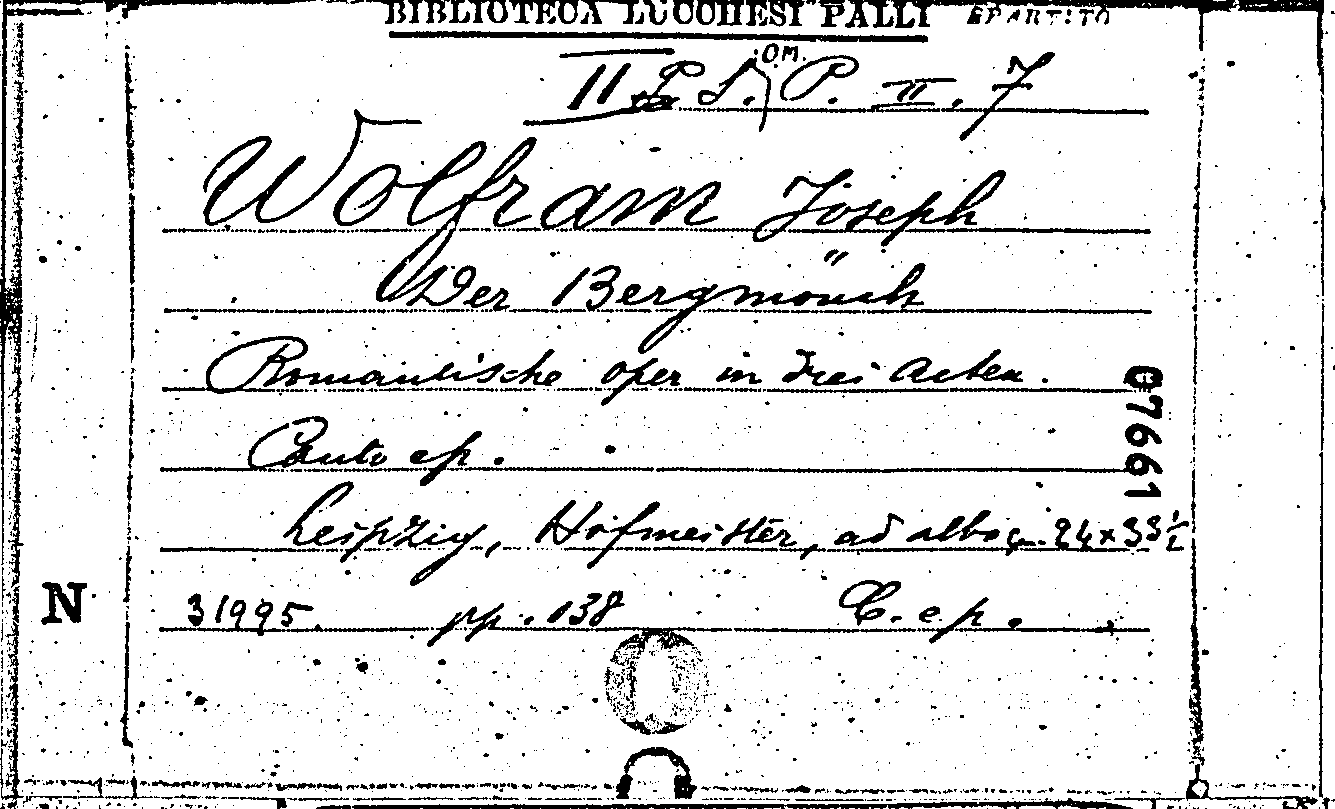 BIBLIOTECA LUCCHESI PALLI SPARTITO
O.M.
II S. P. II. 7
Wolfram Joseph
Der Bergmönch
Romantische oper in drei Acten.
Canto e p.
Leipzig, Hofmeister, ad albo cm. 24x33½
N 31995. pp. 138 C. e p.
07661